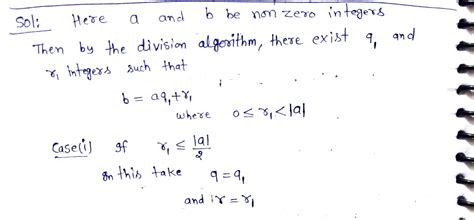 Sol: Here a and b be non zero integers
Then by the division algorithm, there exist q₁ and
r₁ integers such that
b = aq₁+r₁
where 0 ≤ r₁ < |a|
Case(i) If r₁ ≤ |a|/2
In this take q = q₁
and r = r₁